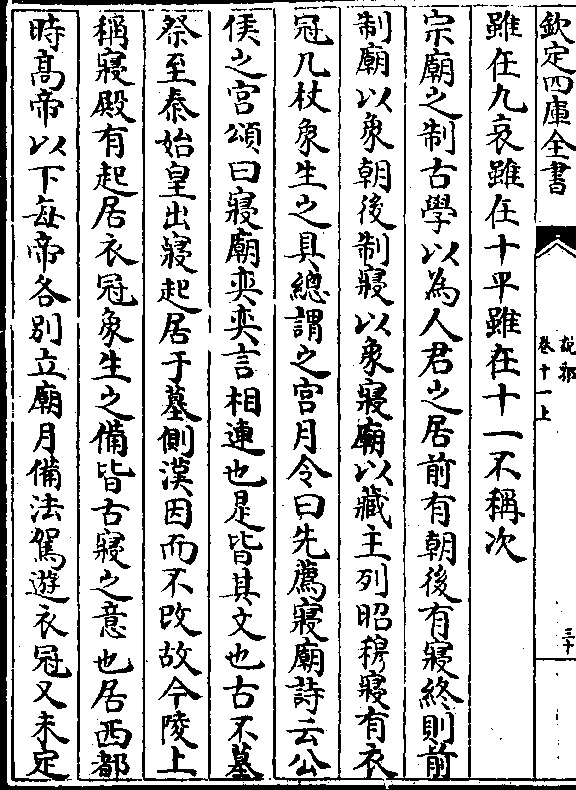 欽定四庫全書
說郛
卷十一上
三十
雖在九哀雖在十平雖在十一不稱次
宗廟之制古學以為人君之居前有朝後有寢終則前
制廟以象朝後制寢以象寢廟以藏主列昭穆寢有衣
冠几杖象生之具總謂之宫月令曰先薦寢廟詩云公
侯之宫頌曰寢廟奕奕言相連也是皆其文也古不墓
祭至秦始皇出寢起居于墓側漢因而不改故今陵上
稱寢殿有起居衣冠象生之備皆古寢之意也居西都
時高帝以下每帝各别立廟月備法駕遊衣冠又未定